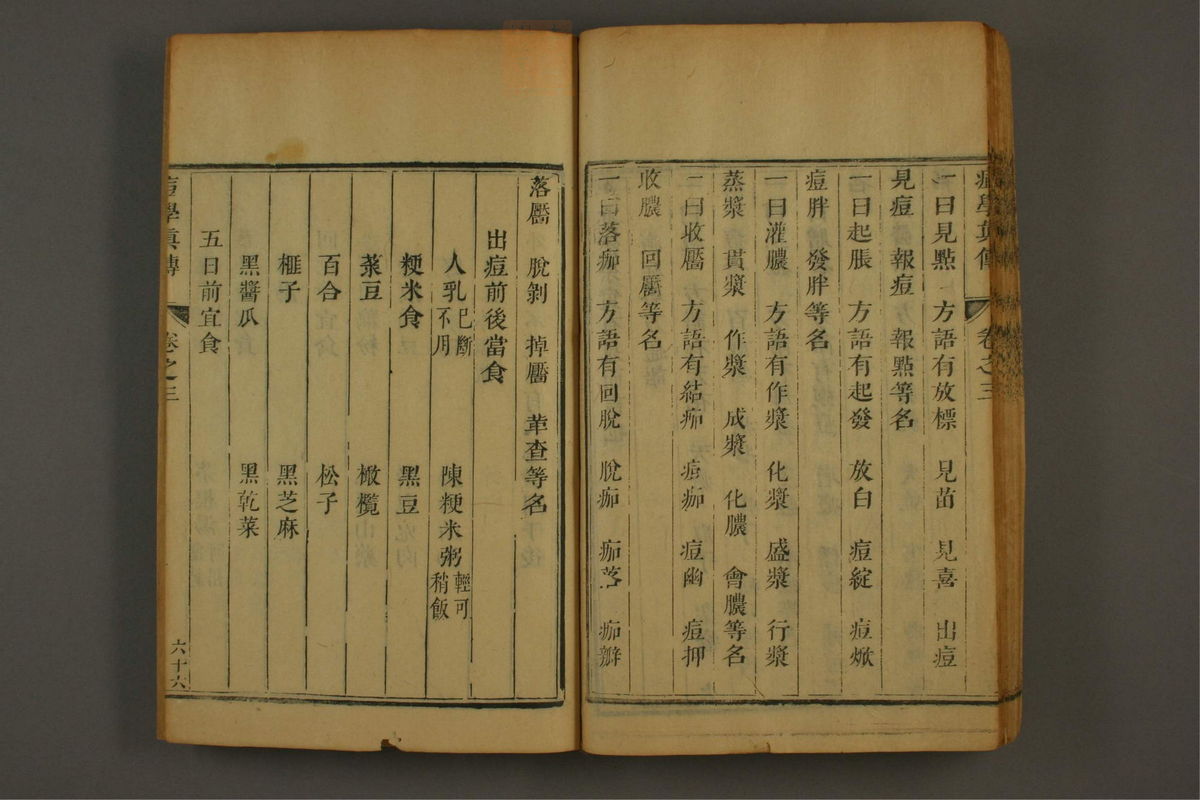 痘學真傳 卷之三
一曰見點 方語有放標 見苗 見喜 出痘
見痘 報痘 報點等名
一曰起脹 方語有起發 放白 痘綻 痘焮
痘胖 發胖等名
一曰灌膿 方語有作漿 化漿 盛漿 行漿
蒸漿 貫漿 作漿 成漿 化膿 會膿等名
一曰收靨 方語有結痂 痘痂 痘幽 痘押
收膿 回靨等名
一曰落痂 方語有回脫 脫痂 痂落 痂瓣
落靨 脫剝 掉靨 革查等名
出痘前後當食
人乳已斷不用 陳粳米粥輕可稍飯
粳米食 黑豆
菉豆 橄欖
百合 松子
榧子 黑芝麻
黑醬瓜 黑乾菜
五日前宜食
痘學真傳 卷之三 六十六